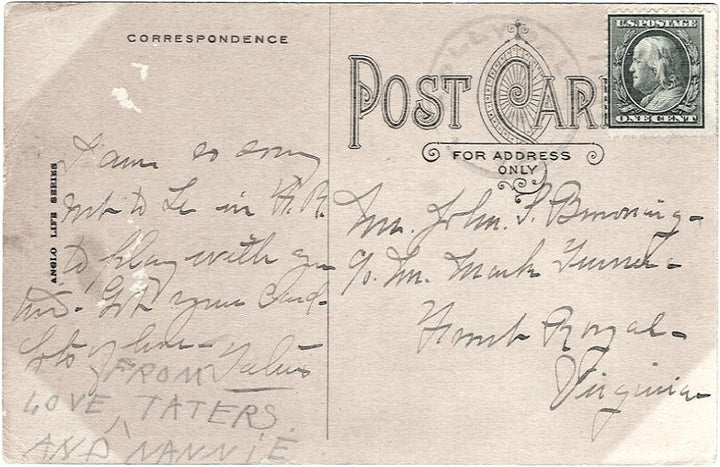 CORRESPONDENCE
POST CARD
FOR ADDRESS
ONLY
U.S. POSTAGE
ONE CENT
ANGLO LIFE SERIES
I am so sorry
not to be in F.R.
to play with you
Got your card-
Lots of love- Taters
FROM
LOVE, TATERS
AND NANNIE
Mr. John. S. Browning-
c/o Mr. Mark Turner-
Front Royal-
Virginia-